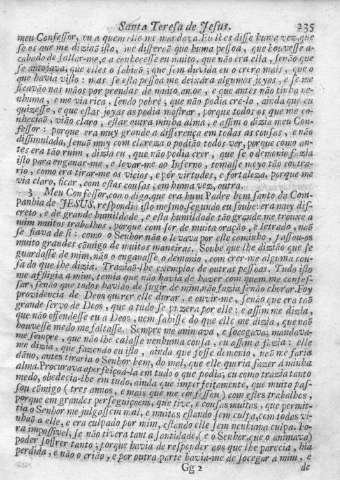 Santa Teresa de Jesus. 235
meu Confessor, ou a quem elle me mandava. Eu lhes disse huma vez, que
se os que me diziaõ isto, me dissera que huma pessoa, que houvesse a-
cabado de fallar-me, e a conhecesse eu muito, que não era ella, senão que
se antojava, que elles o sabiaõ; que sem duvida eu o crera mais, que o
que havia visto: mas se esta pessoa me deixára algumas joyas, e que me
ficavão nas mãos por prendas de muito amor, e que antes não tinha ne-
nhuma, e me via rica, sendo pobre; que não podia cre-lo, ainda que eu
quizesse, e que estas joyas as podia mostrar, porque todos os que me co-
nheciaõ, viaõ claro, estar outra minha alma; e assim o dizia meu Con-
fessor: porque era muy grande a differença em todas as cousas, e não
dissimulada, senaõ muy com clareza o podiaõ todos ver, porque como an-
tes era tão ruim, dizia eu, que não podia crer, que se o demonio fazia
isto para enganar-me, e levar-me ao Inferno, tomasse meyo tão contra-
rio, como era tirar-me os vicios, e pôr virtudes, e fortaleza; porque me
via claro, ficar, com estas cousas, em huma vez, outra.
3 Meu Confessor, como digo, que era hum Padre bem santo da Com-
panhia de JESUS, respondia isto mesmo, segundo eu soube: era muy dis-
creto, e de grande humildade, e esta humildade tão grande me trouxe a
mim muitos trabalhos, porque com ser de muita oração, e letrado, não
se fiava de si: como o Senhor não o levava por este caminho, passou-os
muito grandes cõmigo de muitas maneiras. Soube que lhe diziaõ que se
guardasse de mim, não o enganasse o demonio, com crer-me alguma cou-
sa do que lhe dizia. Traziaõ-lhe exemplos de outras pessoas. Tudo isto
me affligia a mim, temia que não havia de haver com quem me confes-
sar, senão que todos havião de fugir de mim: não fazia senão chorar. Foy
providencia de Deos querer elle durar, e ouvir-me, senão que era taõ
grande servo de Deos, que a tudo se puzera por elle; e assim me dizia,
que não offendesse eu a Deos, nem sahisse do que elle me dizia, que não
houvesse medo me faltasse. Sempre me animava, e socegava, mandava-
me sempre, que não lhe calasse nenhuma cousa, eu assim o fazia: elle
me dizia, que fazendo eu isto, ainda que fosse demonio, naõ me faria
dãno, antes tiraria o Senhor bem, do mal, que elle queria fazer á minha
alma. Procurava aperfeiçoá-la em tudo o que podia; eu como trazia tanto
medo, obedecia-lhe em tudo, ainda que imperfeitamente, que muito pas-
sou cõmigo (tres annos, e mais que me confessou) com estes trabalhos,
porque em grandes perseguiçoens, que tive, e cousas muitas, que permit-
tia o Senhor me julgassem mal, e muitas estando sem culpa, com todas vi-
nhaõ a elle, e era culpado por mim, estando elle sem nenhuma culpa. Fo-
ra impossivel, se não tivera tanta santidade (e o Senhor, que o animava)
poder soffrer tanto; porque havia de responder aos que lhe parecia, hia
perdida, e não o criaõ; e por outra parte havia-me de socegar a mim, e
Gg 2 de